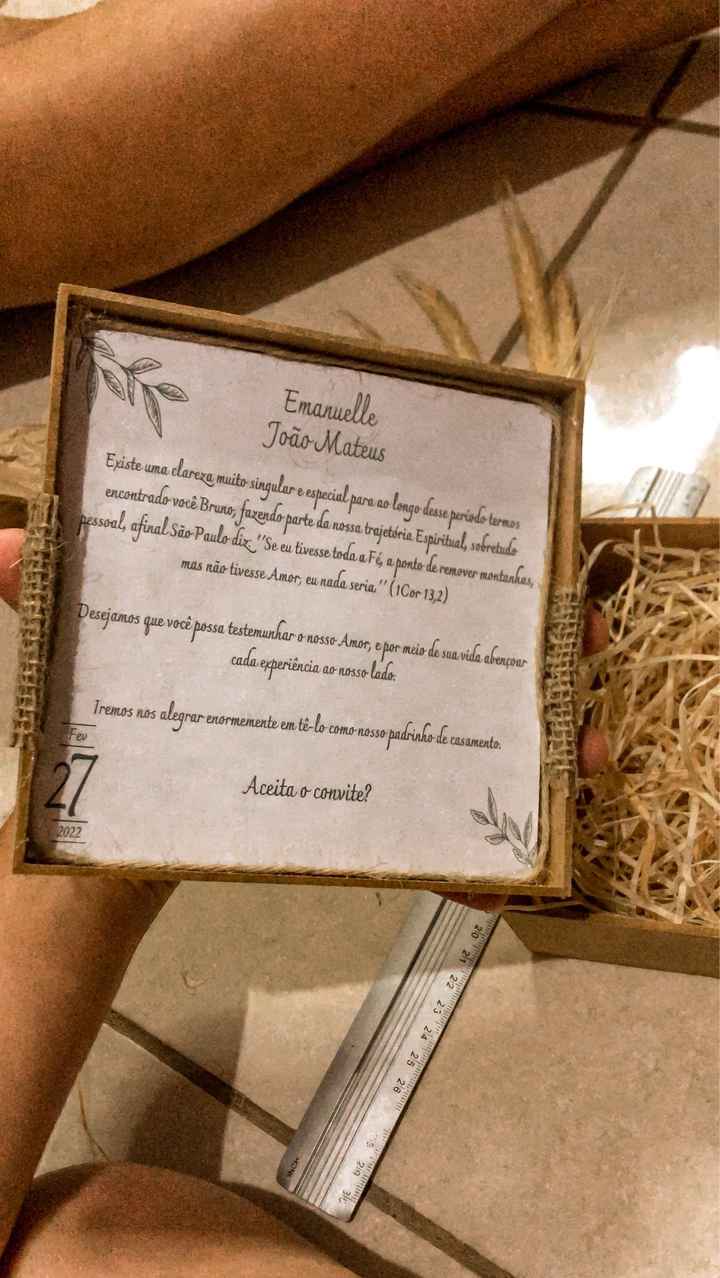 Emanuelle
João Mateus
Existe uma clareza muito singular e especial para ao longo desse período termos
encontrado você Bruno, fazendo parte da nossa trajetória Espiritual, sobretudo
pessoal, afinal São Paulo diz ''Se eu tivesse toda a Fé, a ponto de remover montanhas,
mas não tivesse Amor, eu nada seria.'' (1Cor 13,2)
Desejamos que você possa testemunhar o nosso Amor, e por meio de sua vida abençoar
cada experiência ao nosso lado.
Iremos nos alegrar enormemente em tê-lo como nosso padrinho de casamento.
Aceita o convite?
Fev
27
2022
20 21 22 23 24 25 26 29 30